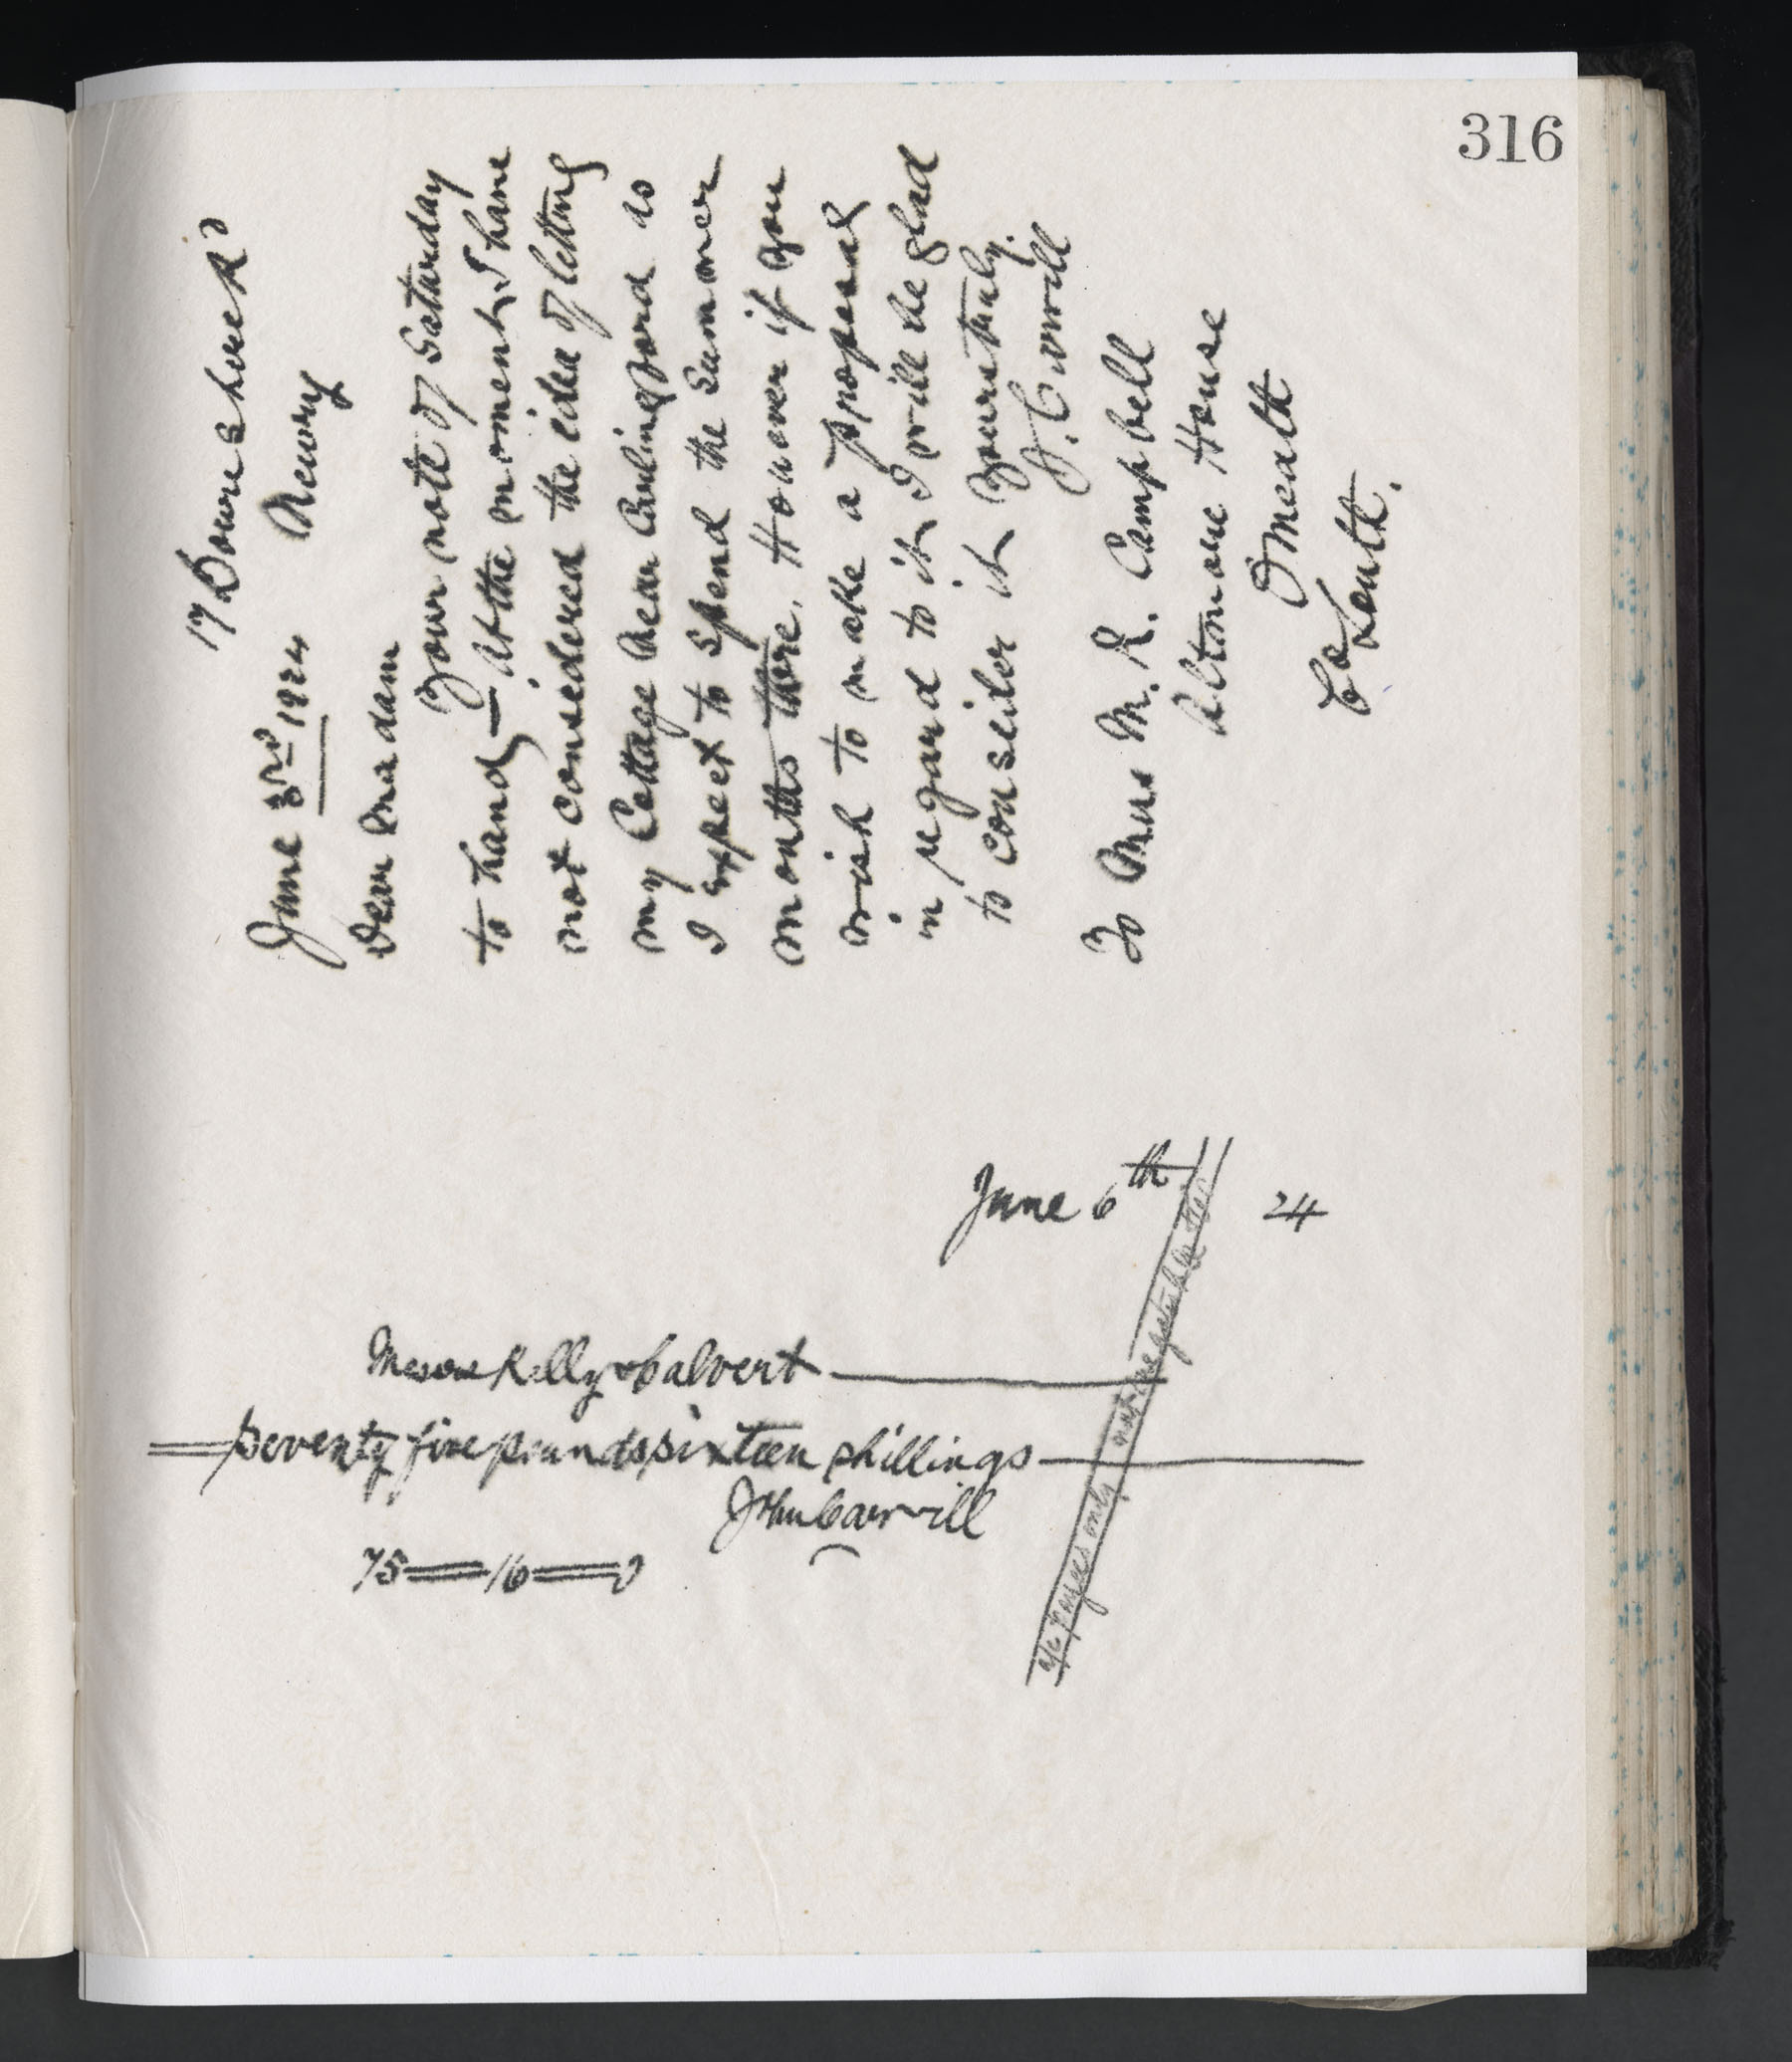 316
17 Downshire Rd
Newry
June 3rd 1924
Dear Madam
Your note of Saturday
to hand — At the moment I have
not considered the idea of letting
my Cottage near Carlingford as
I expect to spend the Summer
months there. However if you
wish to make a proposal
in regard to it I will be glad
to consider it Yours truly.
J. Carvill
To Mrs M. R. Campbell
Altmore House
Omeath
Co Louth.
June 6th 24
Messrs Kelly & Calvert
Seventy five pounds sixteen shillings
John Carvill
75 = 16 = 0
a/c payees only not negotiable